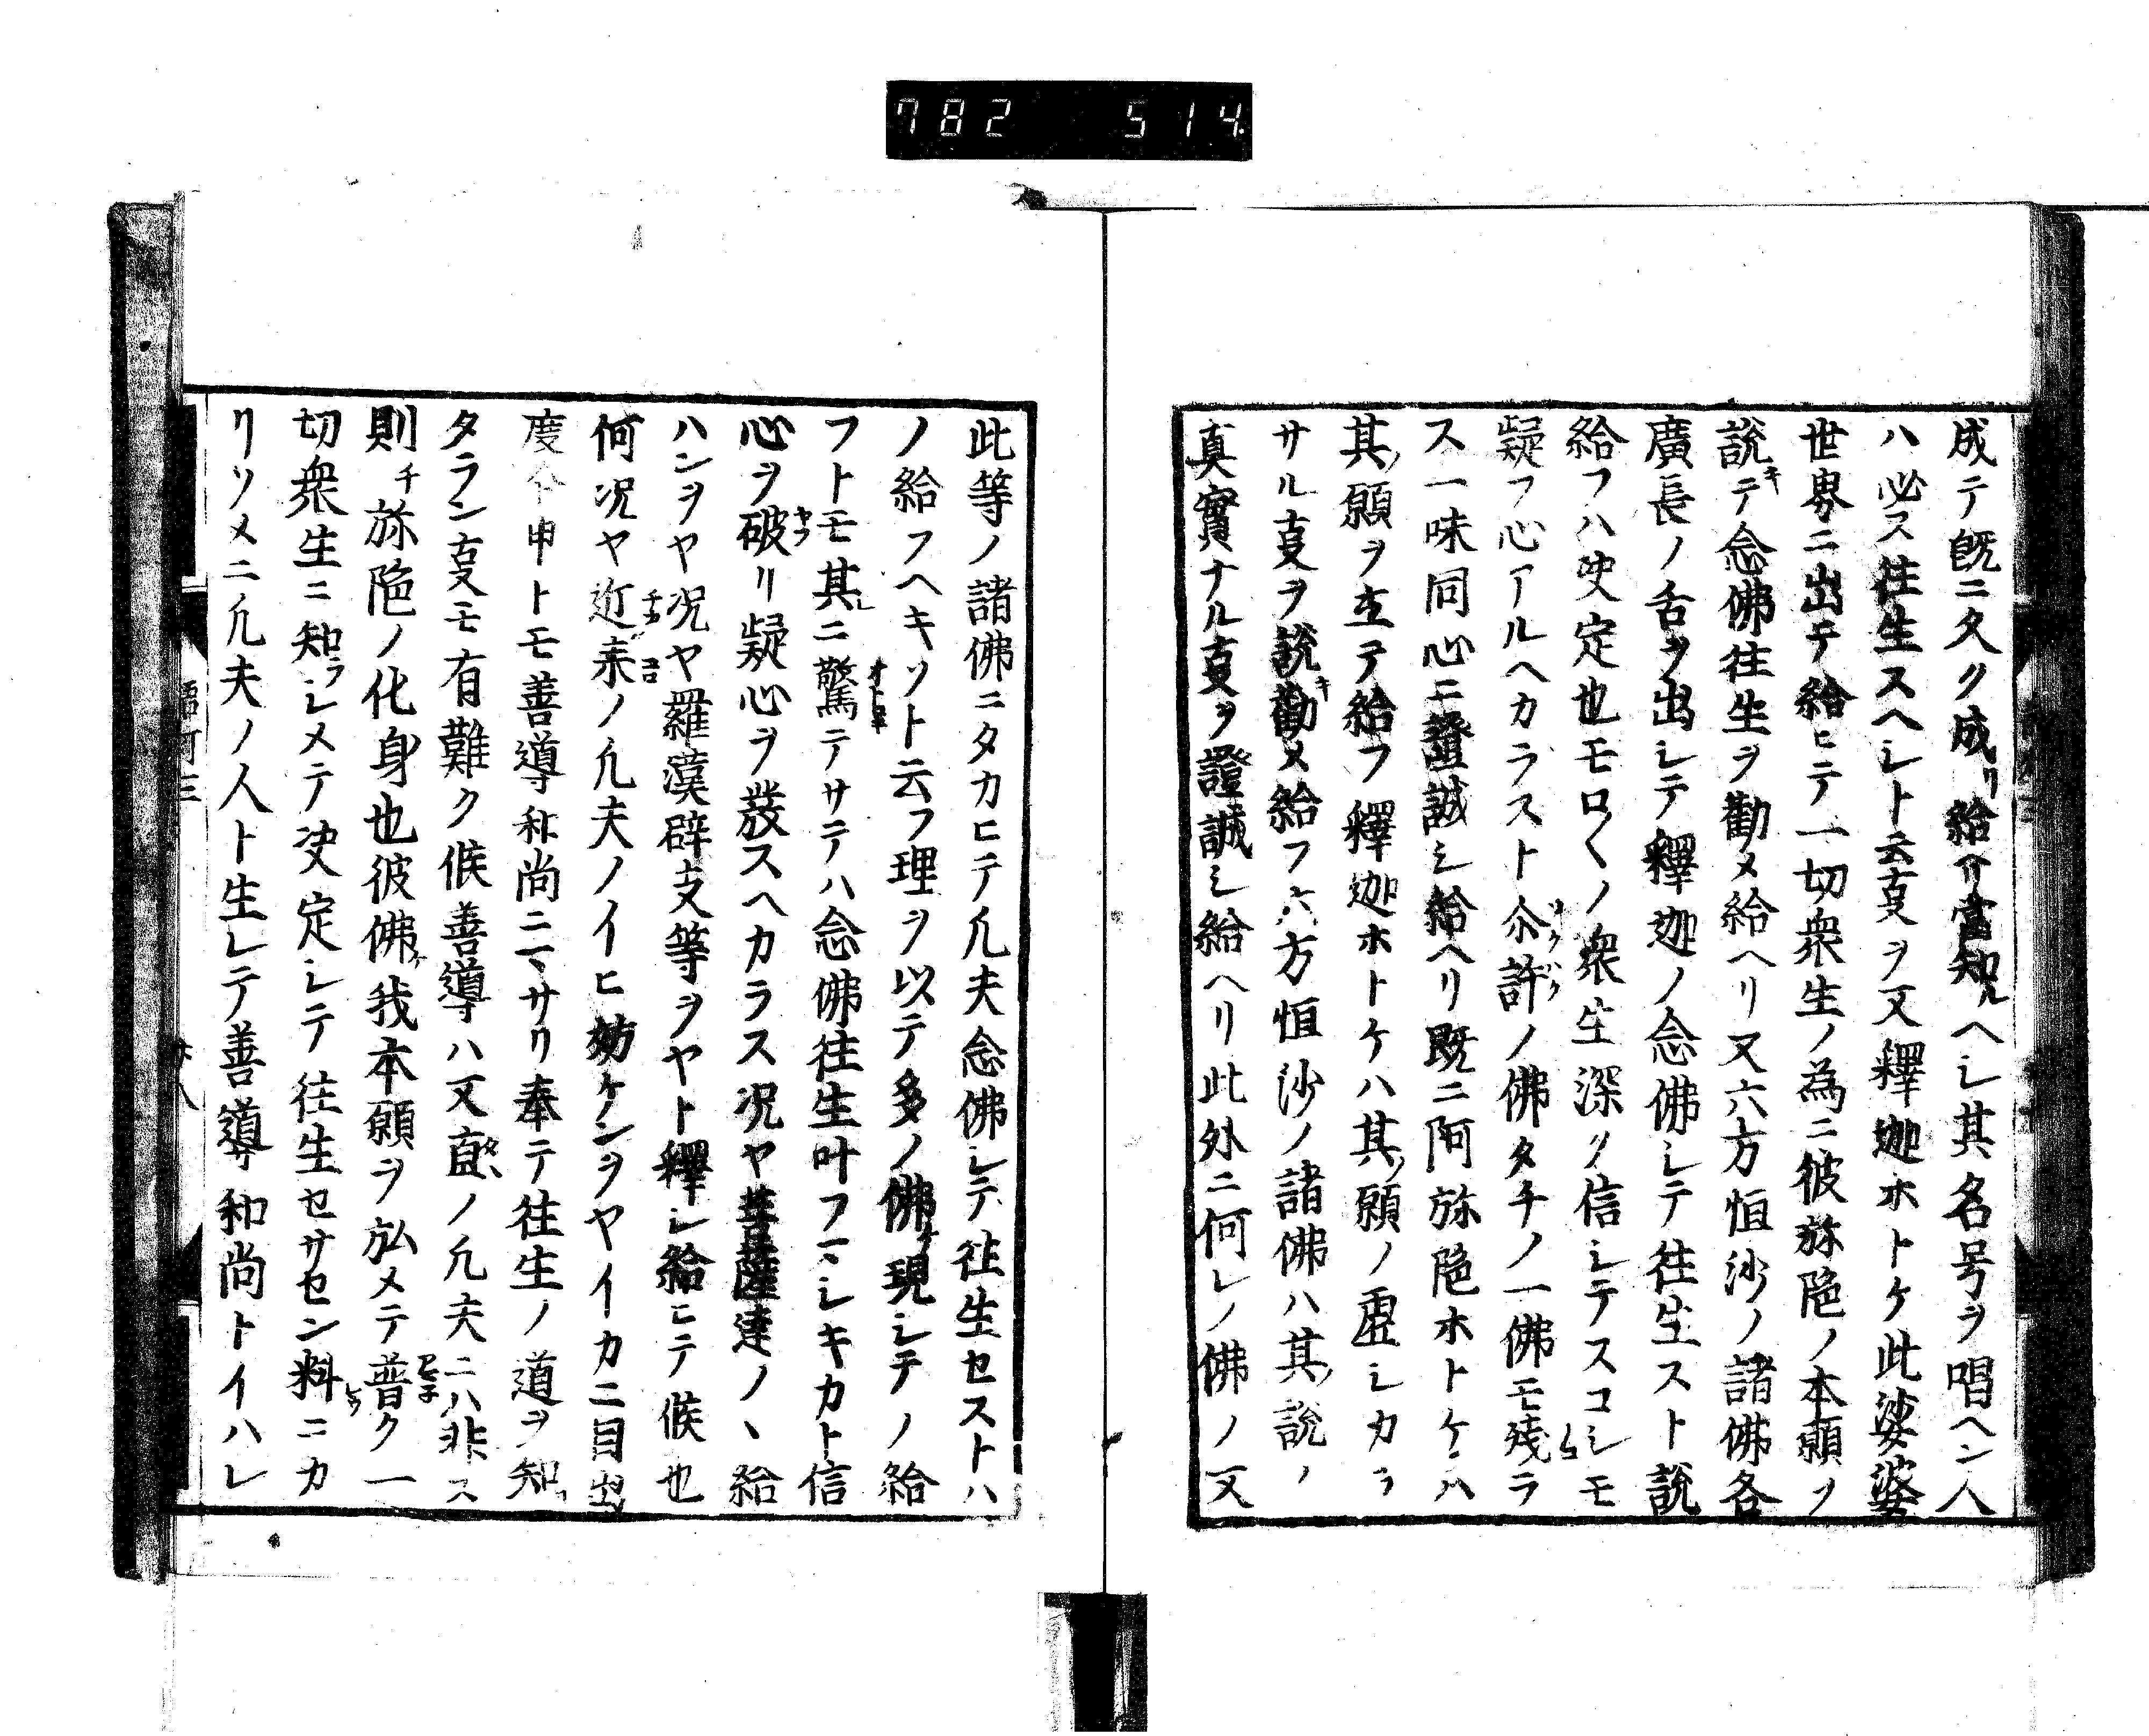 782 514
成テ既ニ久ク成リ給ヘリ當知ルヘシ其名号ヲ唱ヘン人
ハ必ス往生スヘシト云亊ヲ又釋迦ホトケ此娑婆
世界ニ出テ給ヒテ一切衆生ノ為ニ彼弥陁ノ本願ヲ
說キテ念佛往生ヲ勸メ給ヘリ又六方恒沙ノ諸佛各
廣長ノ舌ヲ出シテ釋迦ノ念佛シテ往生スト說
給フハ决定也モロ〱ノ衆生深ク信シテスコシモ
疑フ心アルヘカラスト尒許ノ佛タチノ一佛モ残ラ
ス一味同心ニ證誠シ給ヘリ既ニ阿弥陁ホトケハ
其ノ願ヲ立テ給フ釋迦ホトケハ其ノ願ノ虚シカラ
サル亊ヲ說キ勸メ給フ六方恒沙ノ諸佛ハ其ノ說ノ
真實ナル亊ヲ證誠シ給ヘリ此外ニ何レノ佛ノ又
此等ノ諸佛ニタカヒテ凢夫念佛シテ往生セストハ
ノ給フヘキソト云フ理ヲ以テ多ノ佛ケ現シテノ給
フトモ其レニ驚テサテハ念佛往生叶フマシキカト信
心ヲ破リ疑心ヲ發スヘカラス况ヤ菩薩達ノヽ給
ハンヲヤ况ヤ羅漢辟支等ヲヤト釋シ給ヒテ候也
何况ヤ近来ノ凢夫ノイヒ妨ケンヲヤイカニ目出
度ク申トモ善導和尚ニマサリ奉テ往生ノ道ヲ知
タラン亊モ有難ク候善導ハ又直ノ凢夫ニハ非ス
則チ弥陁ノ化身也彼佛ケ我本願ヲ弘メテ普ク一
切衆生ニ知ラシメテ决定シテ往生セサセン料ニカ
リソメニ凢夫ノ人ト生レテ善導和尚トイハレ